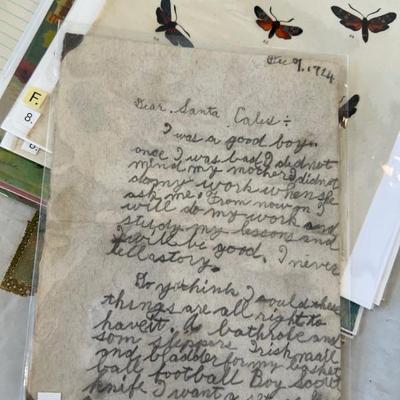 F.
8.
Dec 9, 1924
Dear Santa Calus ÷
I was a good boy.
once I was bad I did not
mind my mother I did not
do my work when she
ask me. From now on I
will do my work and
study my lessons and
I will be good. I never
tell a story.
Do you think I could these
things are all right to
have it. A bathrobe and
som sleppers I rish mail
and bladder for my basket
ball football Boy Scout
knife I want a